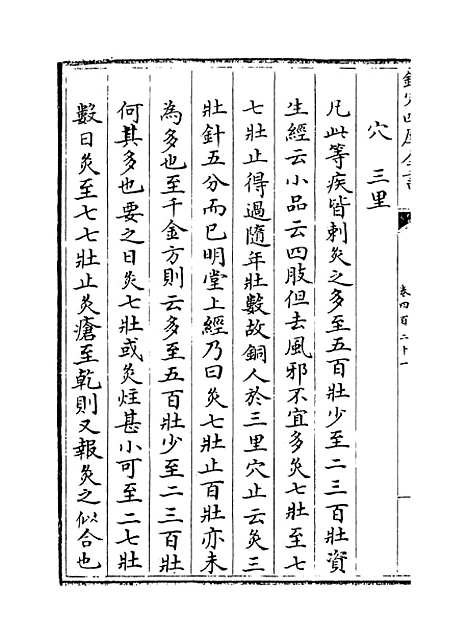 欽定四庫全書
卷四百二十一
穴 三里
凡此等疾皆刺灸之多至五百壯少至二三百壯資
生經云小品云四肢但去風邪不宜多灸七壯至七
七壯止不得過隨年壯數故銅人於三里穴止云灸三
壯針五分而已明堂上經乃曰灸七壯止百壯亦未
為多也至千金方則云多至五百壯少至二三百壯
何其多也要之日灸七壯或灸炷甚小可至二七壯
數日灸至七七壯止灸瘡至乾則又報灸之似合也